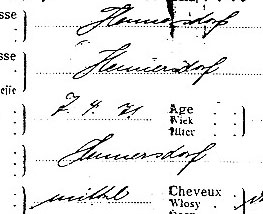 sse } Hennersdorf
sse } Hennersdorf
elle
7. 4. 71 Age
Wiek
Alter
Hennersdorf
mittel Cheveux
Wlosy